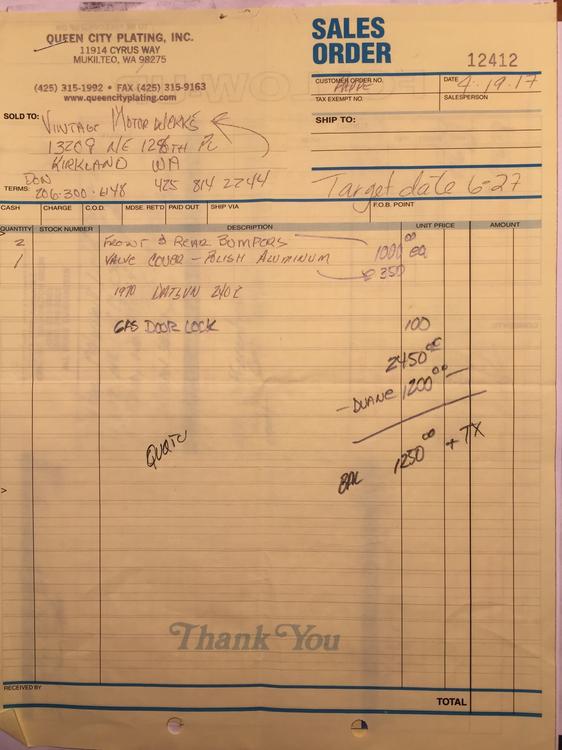 QUEEN CITY PLATING, INC.
11914 CYRUS WAY
MUKILTEO, WA 98275
(425) 315-1992 • FAX (425) 315-9163
www.queencityplating.com
SALES
ORDER
12412
CUSTOMER ORDER NO.
DATE 4-19-17
TAX EXEMPT NO.
SALESPERSON
SOLD TO: VINTAGE MOTOR WERKS
13209 NE 126TH PL
KIRKLAND WA
DON
206-300-6148 425 814 2244
SHIP TO:
Target date 6-27
TERMS:
F.O.B. POINT
CASH CHARGE C.O.D. MDSE. RET'D PAID OUT SHIP VIA
QUANTITY STOCK NUMBER DESCRIPTION UNIT PRICE AMOUNT
2 FRONT & REAR BUMPERS 1000 00 ea
1 VALVE COVER - POLISH ALUMINUM 350
1970 DATSUN 240Z
GAS DOOR LOCK 100
2450 00
- DUANE 1200 00 -
QUOTE
BAL 1250 00 + TX
Thank You
RECEIVED BY
TOTAL